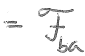 = F̄_ba